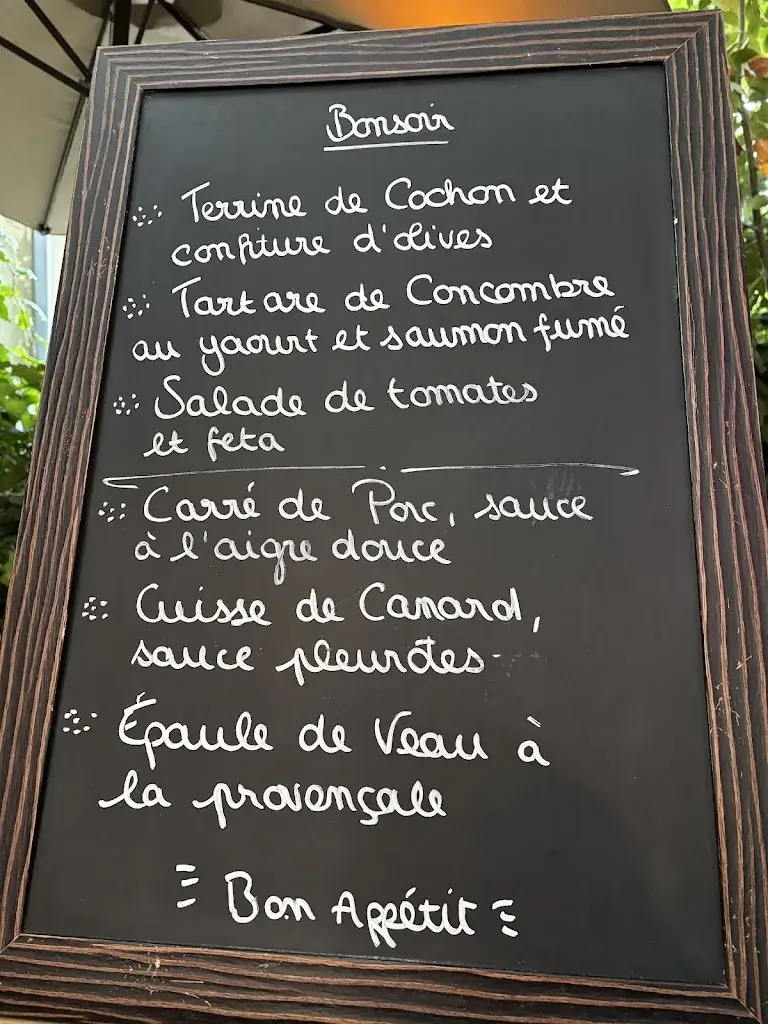 Bonsoir
Terrine de Cochon et
confiture d'olives
Tartare de Concombre
au yaourt et saumon fumé
Salade de tomates
et feta
Carré de Porc, sauce
à l'aigre douce
Cuisse de Canard,
sauce pleurotes
Épaule de Veau à
la provençale
Bon Appétit